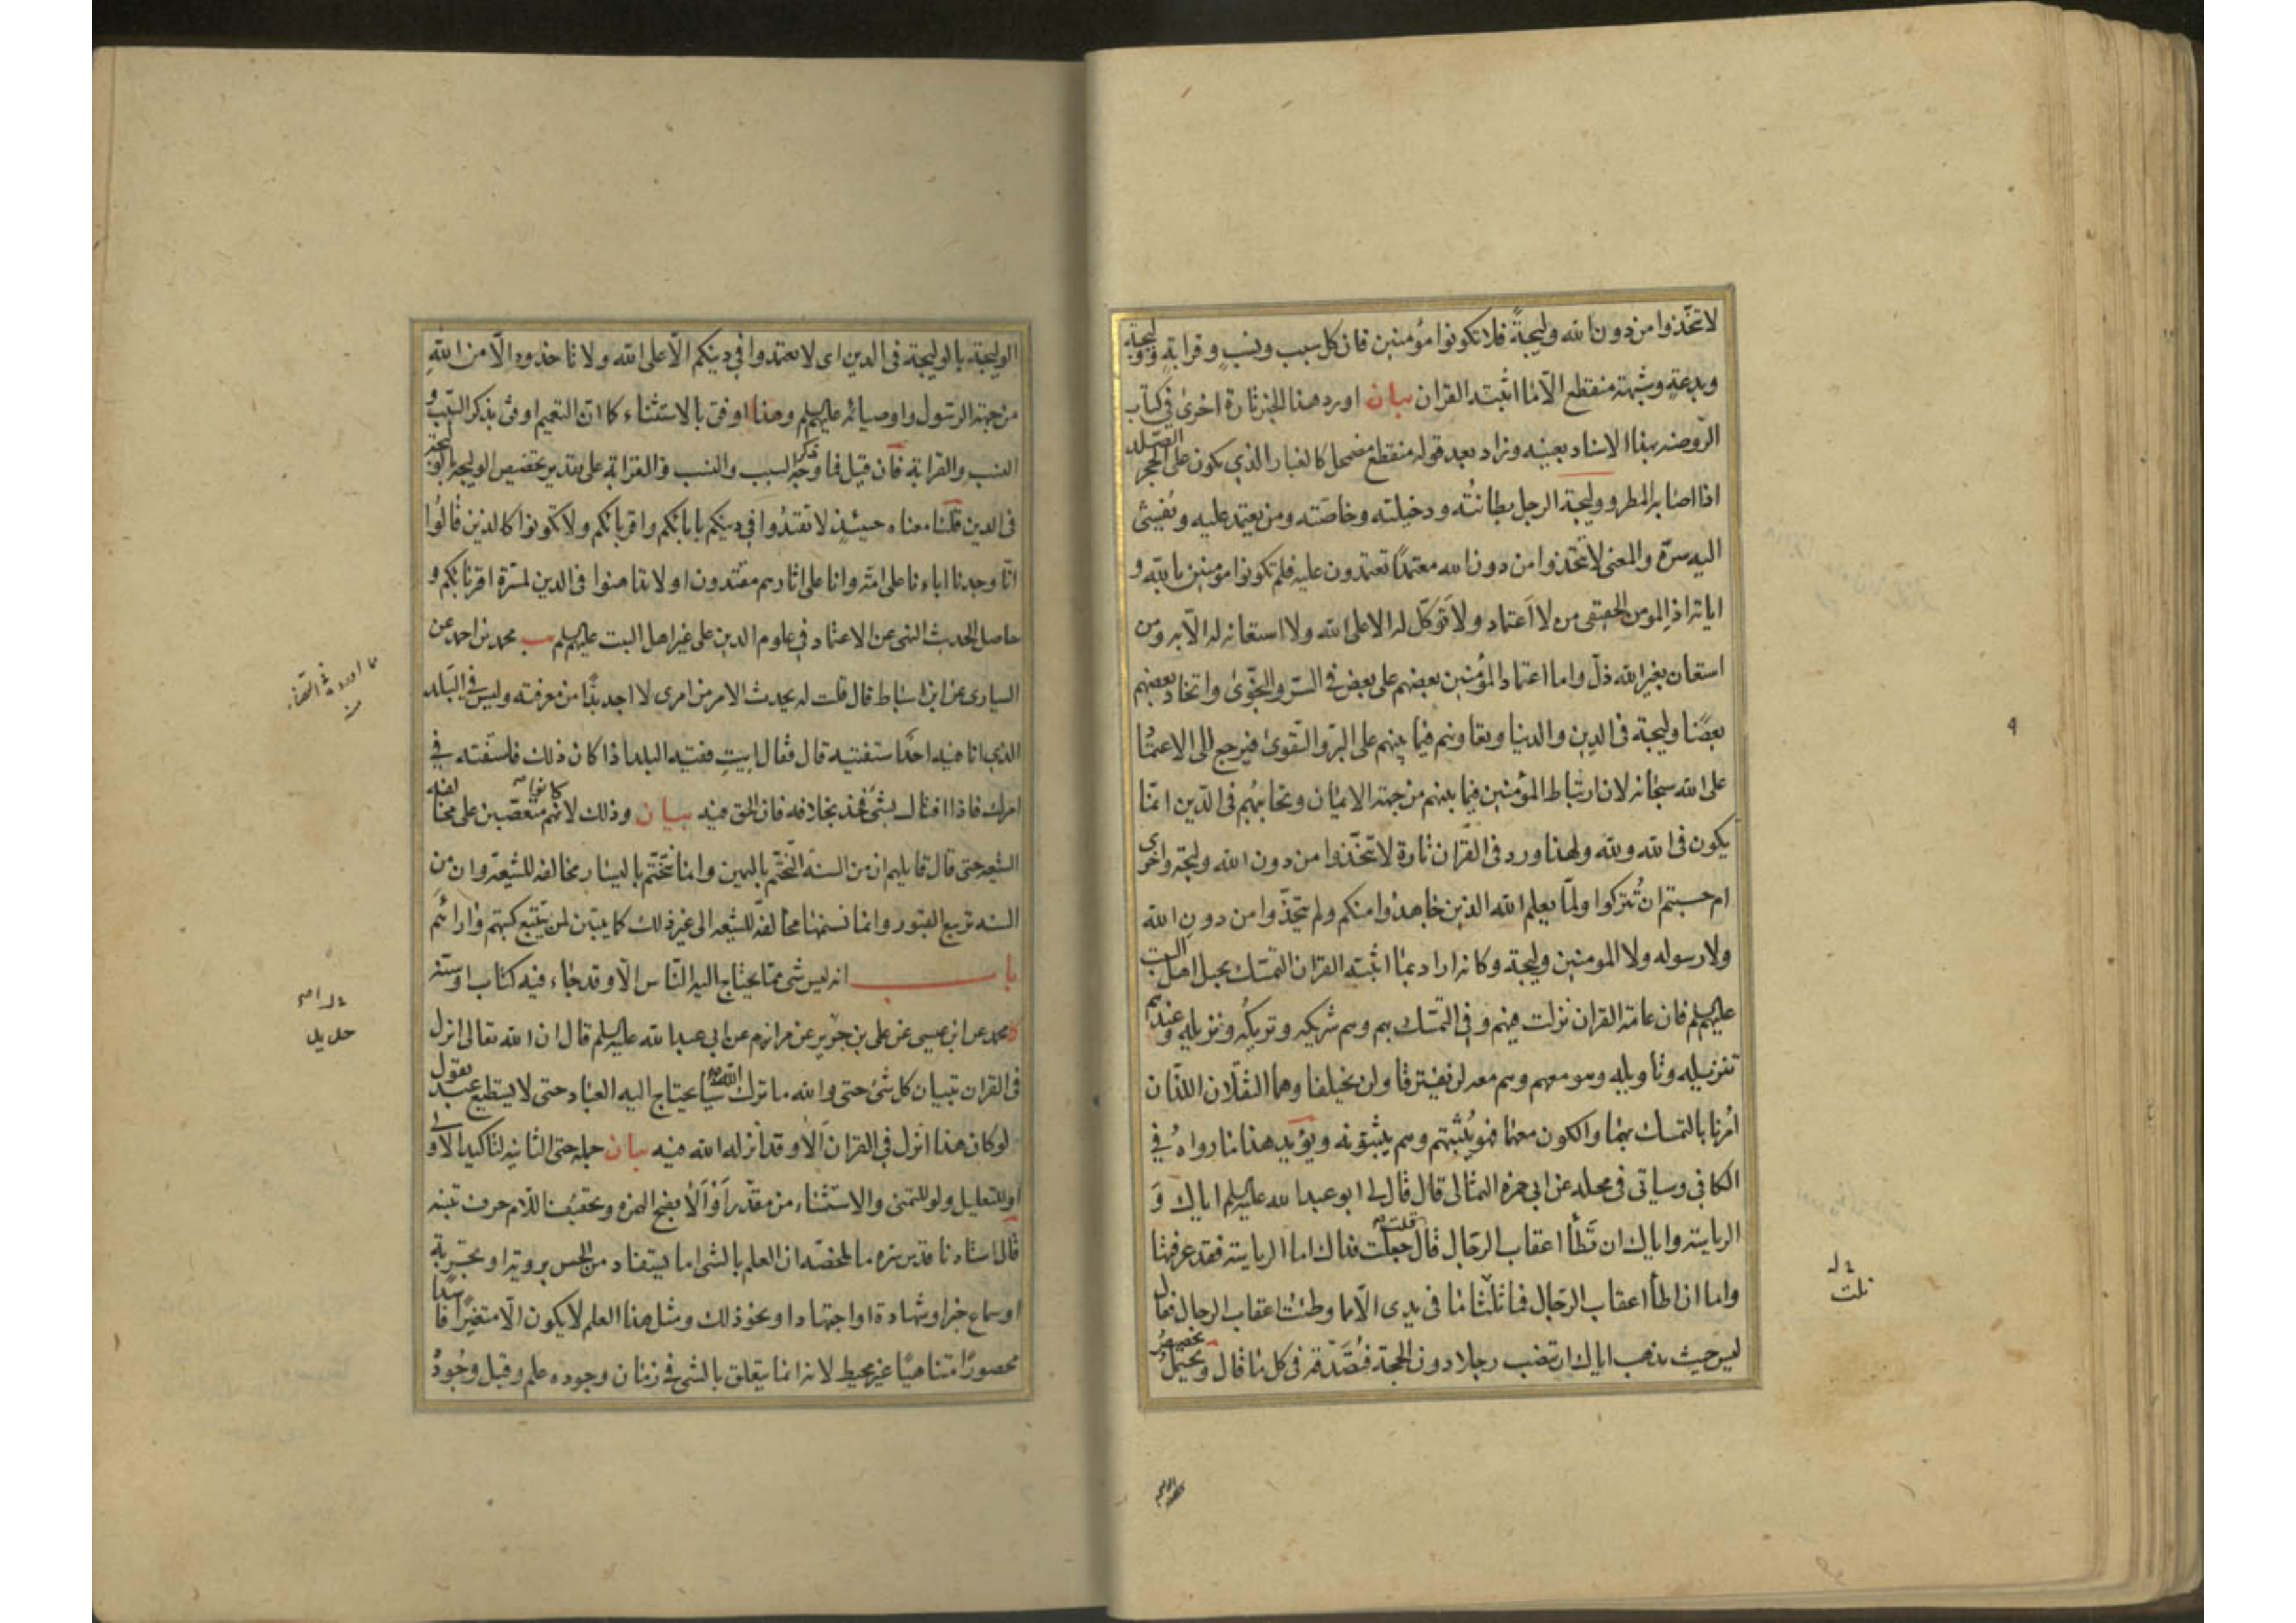 لا تتّخذوا من دون الله وليجةً فلا تكونوا مؤمنين فان كل سبب ونسبٍ وقرابةٍ ووليجة
وبدعةٍ وشبهة منقطع الّا ما اثبته القران بيان اورد هذا الخبر تارة اخرى في كتاب
الروضة بهذا الاسناد بعينه وزاد بعد قوله منقطع مضمحل كالغبار الذي يكون على الحجر الصّلد
اذا اصابه المطر ووليجة الرجل بطانتُه ودخيلته وخاصّته ومن يعتمد عليه ويُفشي
اليه سرّه والمعنى لا تتّخذوا من دون الله معتمدًا تعتمدون عليه فلم تكونوا مومنين بالله و
اياته اذ المومن الحقيقى من لا اعتماد ولا توكّل له الا على الله ولا استعانة له الّا به ومن
استعان بغير الله ذلّ واما اعتماد المؤمنين بعضهم على بعض في السّر والنجوى واتخاذ بعضهم
بعضًا وليجة فى الدين والدنيا وتعاونهم فيما بينهم على البرّ والتقوى فيرجع الى الاعتماد
على الله سبحانه لان ارتباط المؤمنين فيما بينهم من جهة الايمان وتحابّهم فى الدّين انمّا
يكون فى الله ولله ولهذا ورد فى القران تارة لا تتّخذوا من دون الله وليجة واخرى
ام حسبتم ان تُتركوا ولمّا يعلم الله الذين جاهدوا منكم ولم يتّخذوا من دون الله
ولا رسوله ولا المومنين وليجة وكانه اراد بما اثبته القران التمسّك بحبل اهل البيت
عليهم السلم فان عامّة القران نزلت فيهم وفى التمسّك بهم وهم شريكه وتريكه ونزيله وعندهم
تنزيله وتاويله وهو معهم وهم معه لن يفترقا ولن يختلفا وهما الثقلان اللذان
اُمرنا بالتمسّك بهما والكون معهما فهو يُثبتهم وهم يثبتونه ويؤيد هذا ما رواه في
الكافى وسياتى فى محله عن ابى حمزة الثمالى قال قال لى ابو عبد الله عليه السلم اياك و
الرياسة واياك ان تَطأ اعقاب الرجال قال قلت جعلت فداك اما الرياسة فقد عرفتها
واما ان اطأ اعقاب الرّجال فما ثلثا ما فى يدى الّا مما وطئت اعقاب الرجال فقال
ليس حيث تذهب اياك ان تنصب رجلا دون الحجة فتُصَدّقه فى كل ما قال ويحتمل تخصيص
الوليجة بالوليجة فى الدين اى لا تعتمدوا في دينكم الّا على الله ولا تاخذوه الّا من الله
من جهة الرسول واوصيائه عليهم السلم وهذا اوفق بالاستثناء كما انّ التعميم اوفق بذكر السّبب و
النسب والقرابة فان قيل فما وجه ذكر السبب والنسب والقرابة على تقدير تخصيص الوليجة بالوليجة
فى الدين قلنا معناه حينئذٍ لا تقتدُوا في دينكم بابائكم واقربائكم ولا تكونوا كالذين قالوا
انّا وجدنا اباءنا على امّة وانا على اثارهم مقتدون او لا تداهنوا فى الدين لمسرّة اقربائكم و
حاصل الحديث النهى عن الاعتماد في علوم الدين على غير اهل البيت عليهم السلم يب محمد بن احمد عن
السيارى عن ابن اسباط قال قلت له يحدث الامر من امرى لا اجد بدًّا من معرفته وليس في البلد
الذي انا فيه احدًا ستفتيه قال فقال ايت فقيه البلد اذا كان ذلك فاستفته في
امرك فاذا افتاك بشئ فخذ بخلافه فان الحق فيه بيان وذلك لانهم كانوا متعصّبين على مخالفة
الشيعة حتى قال قايلهم ان من السنة التختّم باليمين وانما نتختّم باليسار مخالفة للشيعة وان من
السنة تربيع القبور وانما نسنمها مخالفة للشيعة الى غير ذلك كما يتبين لمن يتتبع كتبهم وارائهم
باب انه ليس شى ممّا يحتاج اليه النّاس الّا وقد جاء فيه كتاب او سنّة
محمد عن ابن عيسى عن على بن حديد عن مرازم عن ابي عبد الله عليه السلم قال ان الله تعالى انزل
فى القران تبيان كل شئ حتى والله ما ترك الله شيئا يحتاج اليه العباد حتى لا يستطيع عبد يقول
لو كان هذا انزل في القران الا وقد انزله الله فيه بيان جملة حتى الثانية لتاكيد الاولى
او للتعليل ولو للتمنى والاستثناء من مقدّر اَوْ اَلا بفتح الهمزة وتخفيف اللام حرف تنبيه
قال استادنا قدس سره ما ملخصّه ان العلم بالشى اما يستفاد من الحس برويته او تجربة
او سماع خبر او شهادة او اجتهاد او نحو ذلك ومثل هذا العلم لا يكون الّا متغيرًا فاسدًا
محصورًا متناهيًا غير محيط لانه انما يتعلق بالشى في زمان وجوده علم وقبل وجوده